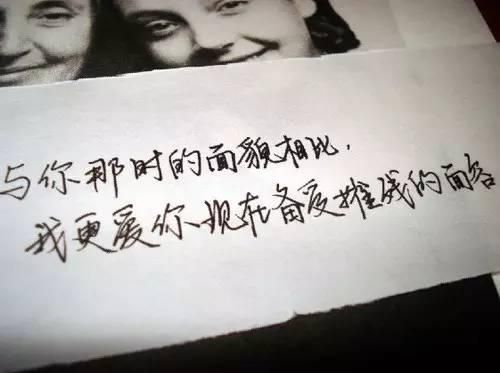 与你那时的面貌相比，
我更爱你现在备受摧残的面容